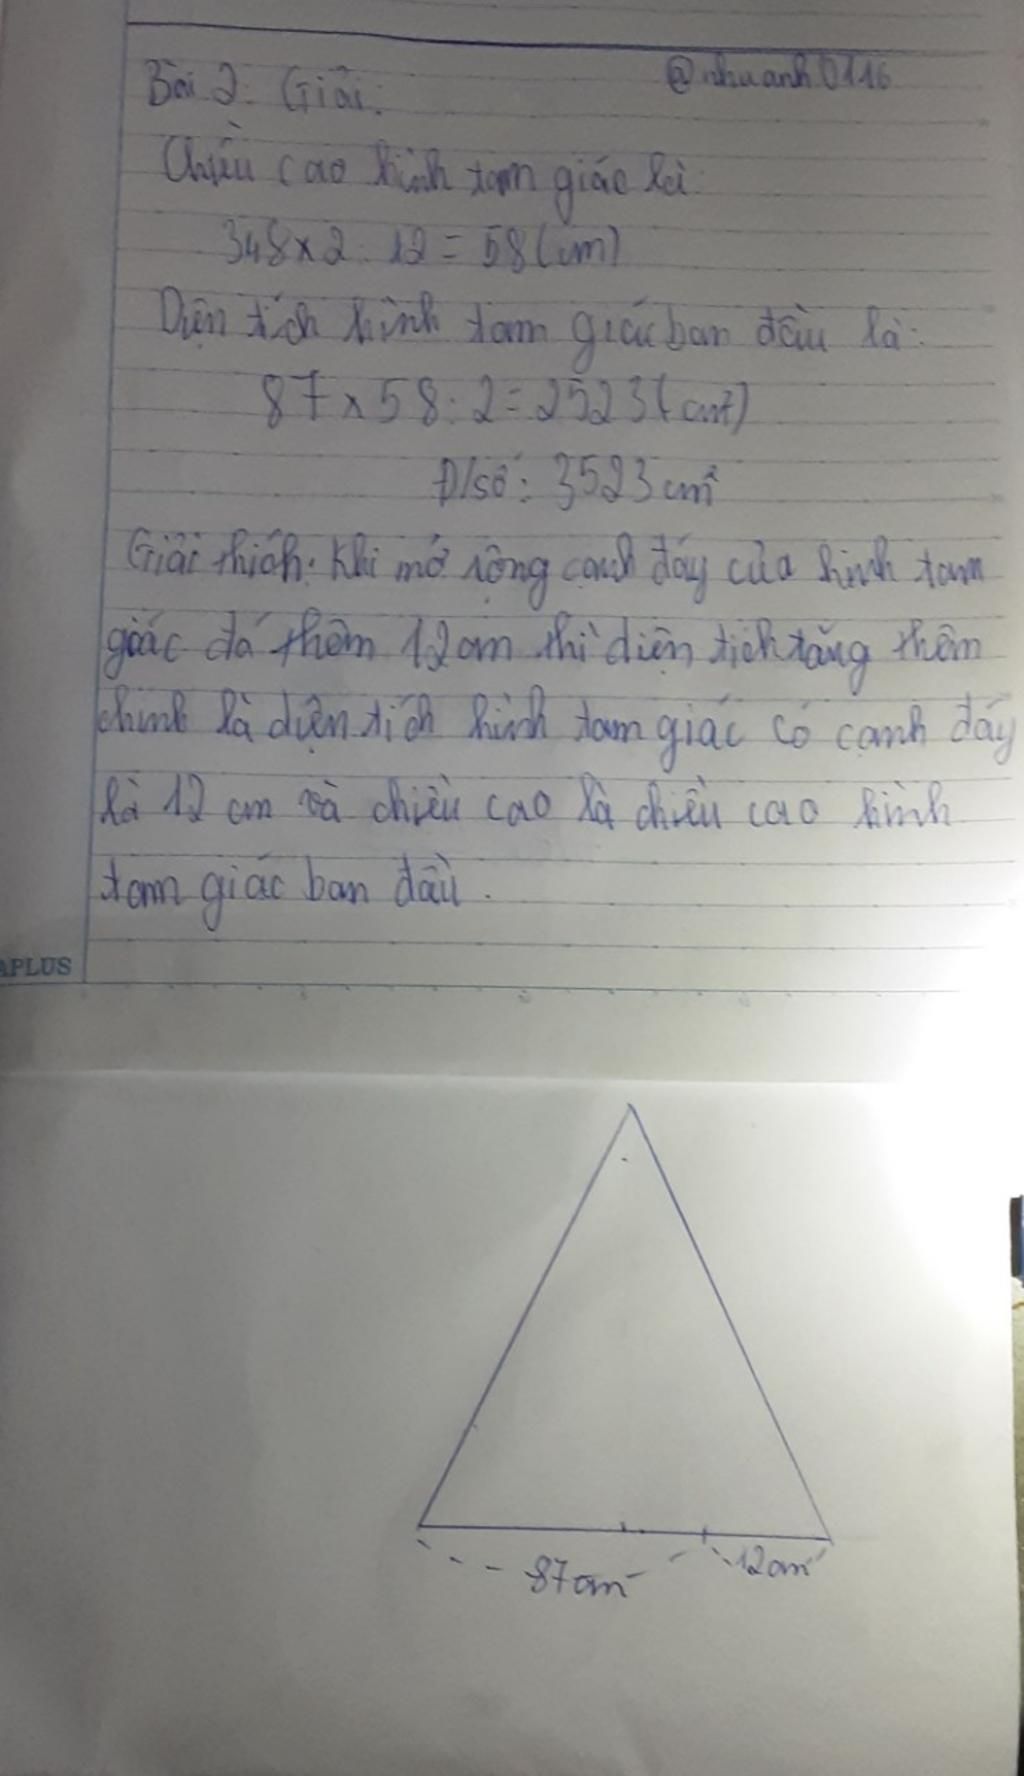 Bài 2: Giải. @nhuanh.0116
Chiều cao hình tam giác là:
348 x 2 : 12 = 58 (cm)
Diện tích hình tam giác ban đầu là:
87 x 58 : 2 = 2523 (cm²)
Đ/số: 3523 cm²
Giải thích: Khi mở rộng cạnh đáy của hình tam
giác đó thêm 12cm thì diện tích tăng thêm
chính là diện tích hình tam giác có cạnh đáy
là 12 cm và chiều cao là chiều cao hình
tam giác ban đầu.
APLUS
87cm 12cm